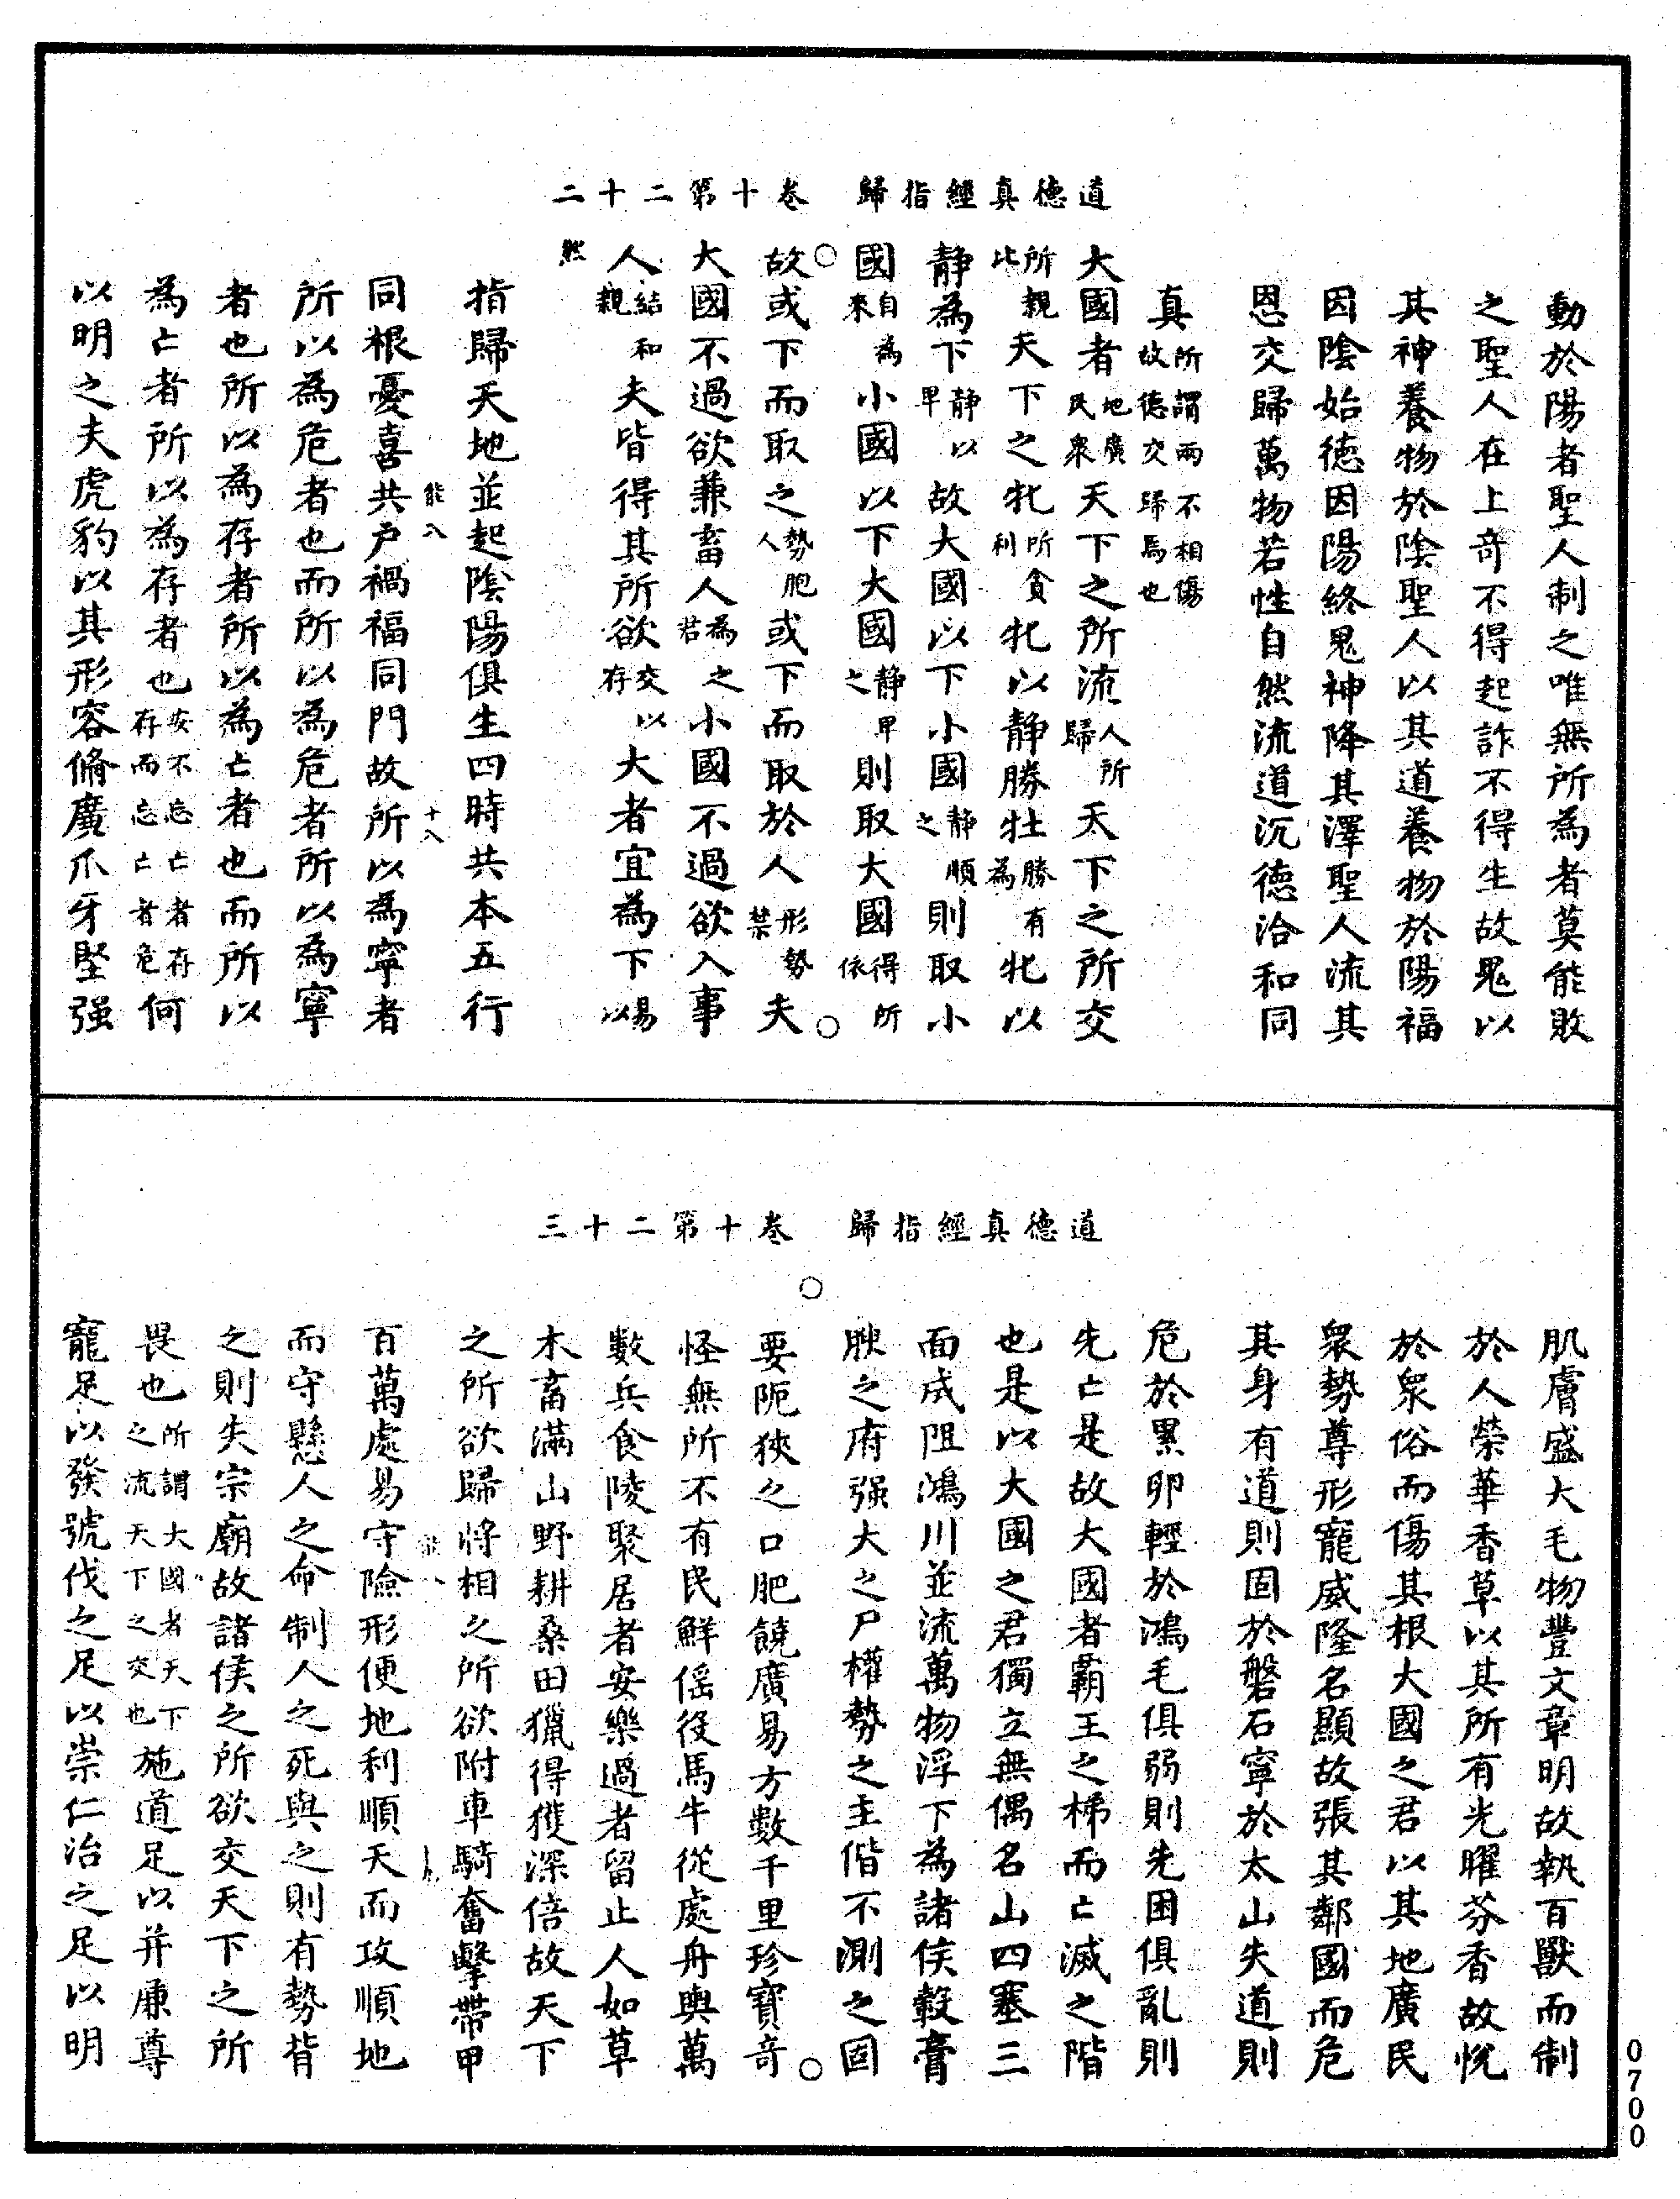 道德真經指歸　卷十第二十二
動於陽者聖人制之唯無所為者莫能敗
之聖人在上奇不得起詐不得生故鬼以
其神養物於陰聖人以其道養物於陽福
因陰始德因陽終鬼神降其澤聖人流其
恩交歸萬物若性自然流道沉德洽和同
真所謂兩不相傷故德交歸焉也
大國者地廣民衆天下之所流人所歸天下之所交
所親比天下之牝所貪利牝以靜勝牡勝有為牝以
靜為下靜以卑故大國以下小國靜順之則取小
國自為來小國以下大國靜卑之則取大國得所依
故或下而取之勢胞人或下而取於人形勢禁夫
大國不過欲兼畜人為之若小國不過欲入事
人結和親夫皆得其所欲交以存大者宜為下易以
然
指歸天地並起陰陽俱生四時共本五行
同根憂喜共戶禍福同門故所以為寧者
能八　十八
所以為危者也而所以為危者所以為寧
者也所以為存者所以為亡者也而所以
為亡者所以為存者也安不忘亡者存存而忘亡者危何
以明之夫虎豹以其形容脩廣爪牙堅强
道德真經指歸　卷十第二十三
肌膚盛大毛物豐文章明故執百獸而制
於人榮華香草以其所有光曜芬香故悅
於衆俗而傷其根大國之君以其地廣民
衆勢尊形寵威隆名顯故張其鄰國而危
其身有道則固於磐石寧於太山失道則
危於累卵輕於鴻毛俱弱則先困俱亂則
先亡是故大國者霸王之梯而亡滅之階
也是以大國之君獨立無偶名山四塞三
面成阻鴻川並流萬物浮下為諸侯穀膏
腴之府强大之尸權勢之主偕不測之固
要阨狹之口肥饒廣易方數千里珍寶奇
怪無所不有民鮮徭役馬牛從處舟輿萬
數兵食陵聚居者安樂過者留止人如草
木畜滿山野耕桑田獵得獲深倍故天下
之所欲歸將相之所欲附車騎奮擊帶甲
百萬處易守險形便地利順天而攻順地
而守懸人之命制人之死與之則有勢背
之則失宗廟故諸侯之所欲交天下之所
畏也所謂大國者天下之流天下之交也施道足以并廉尊
寵足以發號伐之足以崇仁治之足以明
0700